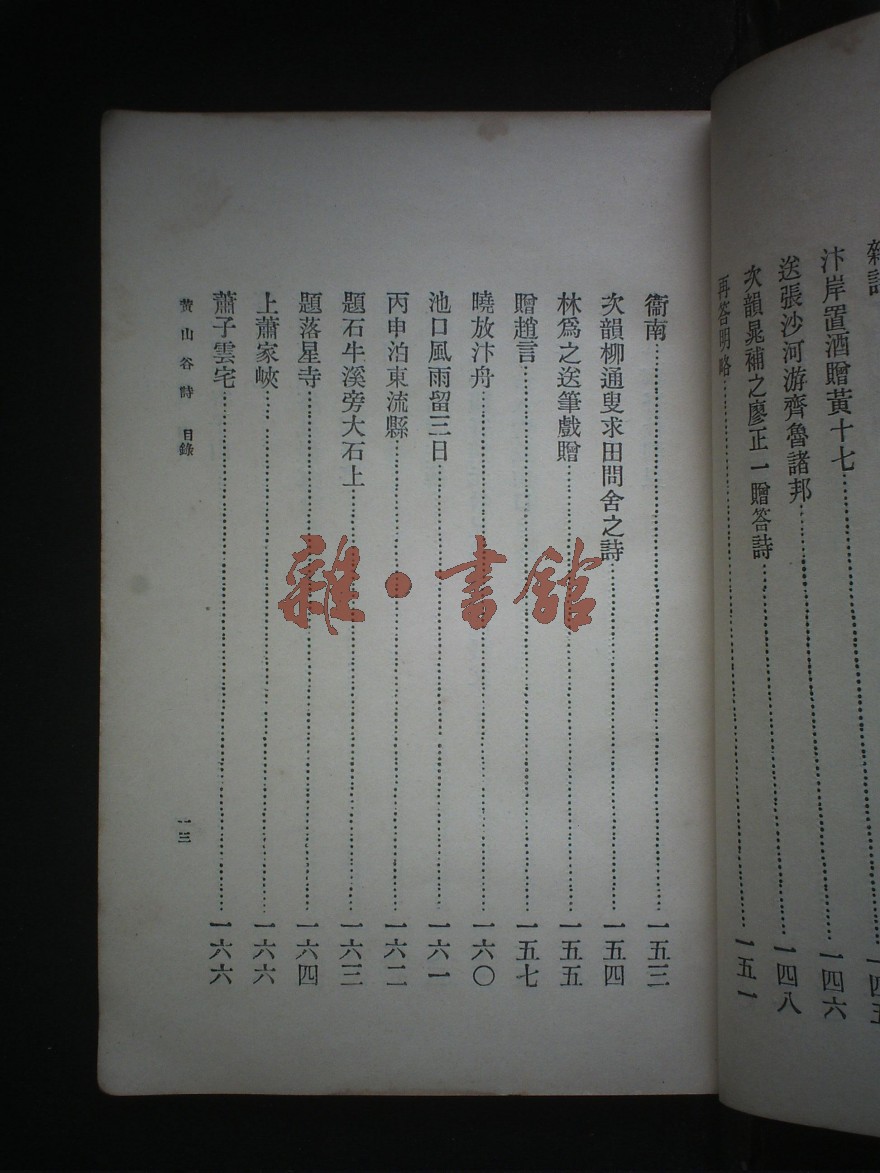 雜詩……一四五
汴岸置酒贈黃十七……一四六
送張沙河游齊魯諸邦……一四八
次韻晁補之廖正一贈答詩
再答明略……一五一
衞南……一五三
次韻柳通叟求田問舍之詩……一五四
林爲之送筆戲贈……一五五
贈趙言……一五七
曉放汴舟……一六〇
池口風雨留三日……一六一
丙申泊東流縣……一六二
題石牛溪旁大石上……一六三
題落星寺……一六四
上蕭家峽……一六六
蕭子雲宅……一六六
黃山谷詩 目錄
一三
雜·書館